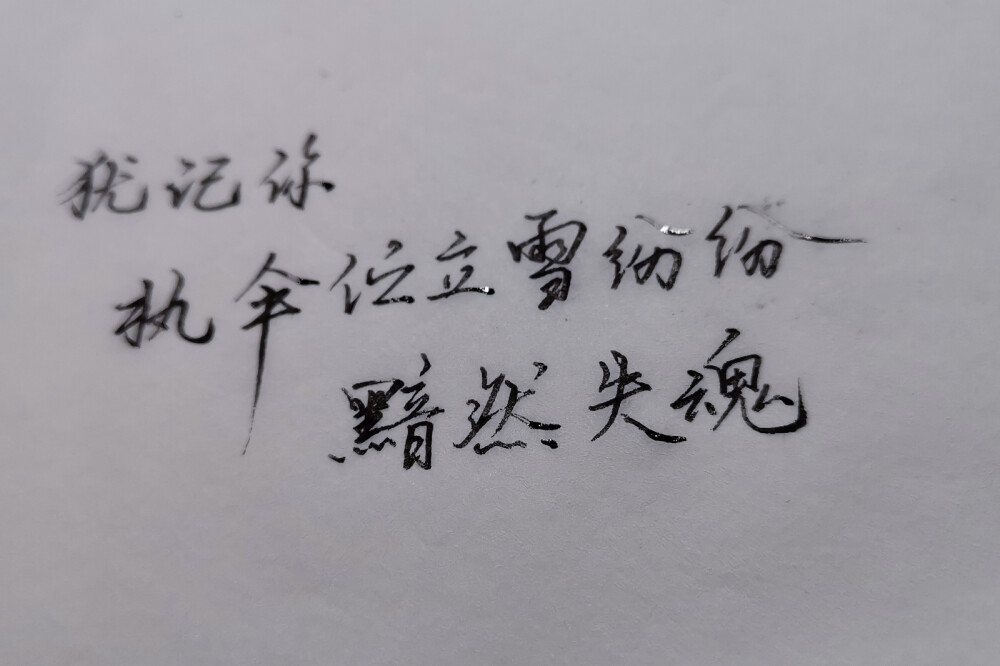 犹记你
执伞伫立雪纷纷
黯然失魂